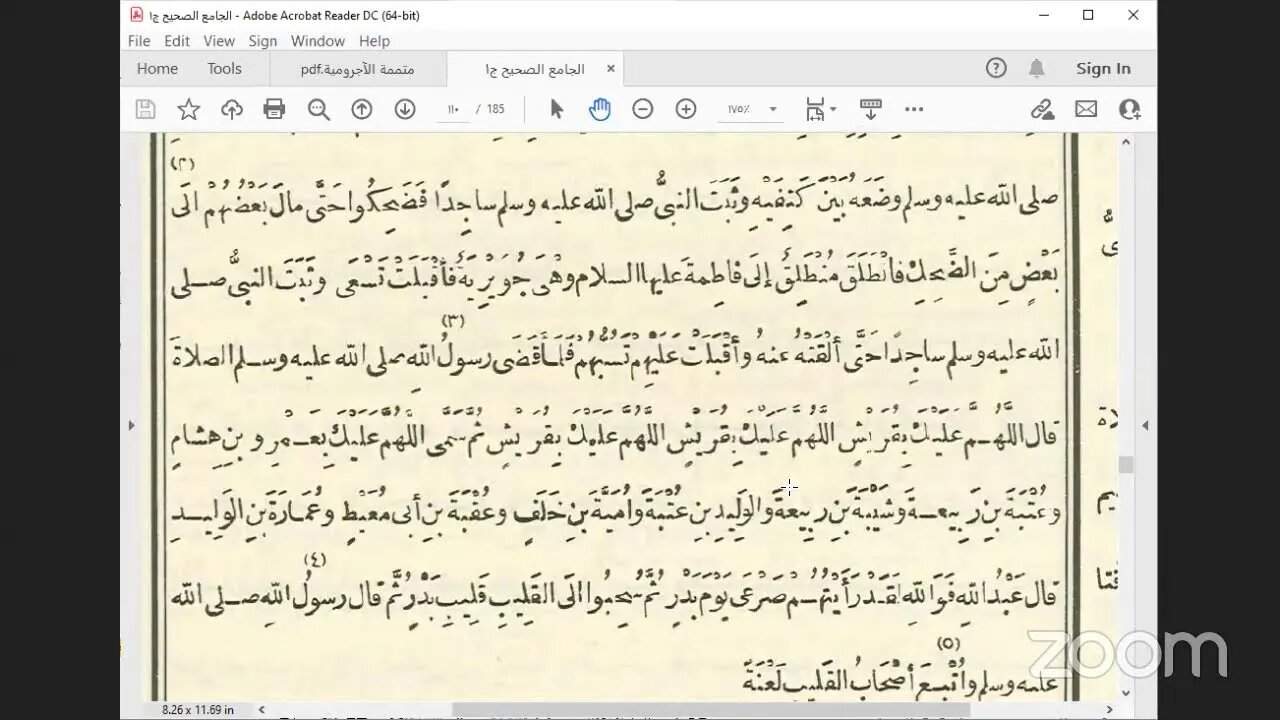 الجامع الصحيح ج١ - Adobe Acrobat Reader DC (64-bit)
File Edit View Sign Window Help
Home Tools متممة الآجرومية.pdf الجامع الصحيح ج١ × Sign In
١١٠ / 185 ١٧٥٪
(٢)
صلى الله عليه وسلم وَضَعَهُ بَيْنَ كَتِفَيْهِ وثَبَتَ النبيُّ صلى الله عليه وسلم ساجِدًا فَضَحِكُوا حَتَّى مالَ بَعْضُهُمْ الَى
بَعْضٍ مِنَ الضَّحِكِ فانْطَلَقَ مُنْطَلِقٌ إلَى فاطِمَةَ عليها السلام وهْىَ جُوَيْرِيَةٌ فأَقْبَلَتْ تَسْعَى وثَبَتَ النبيُّ صلى
(٣)
الله عليه وسلم ساجِدًا حَتَّى ألْقَتْهُ عنهُ وأقْبَلَتْ عَلَيْهِمْ تَسُبُّهُمْ فَلَمَّا قَضَى رسولُ اللهِ صلى الله عليه وسلم الصلاةَ
قال اللَّهُمَّ عليكَ بِقُرَيْشٍ اللَّهُمَّ عَلَيْكَ بِقُرَيْشٍ اللَّهُمَّ عَلَيْكَ بِقُرَيْشٍ ثُمَّ سَمَّى اللَّهُمَّ عليكَ بِعَمْرِو بنِ هِشامٍ
وعُتْبَةَ بنِ رَبِيعَةَ وشَيْبَةَ بنِ رَبِيعَةَ والوَلِيدِ بنِ عُتْبَةَ وأُمَيَّةَ بنِ خَلَفٍ وعُقْبَةَ بنِ أبى مُعَيْطٍ وعُمَارَةَ بنِ الوَلِيدِ
(٤)
قال عَبْدُ اللهِ فَوَاللهِ لَقَدْ رَأَيْتُهُمْ صَرْعَى يَوْمَ بَدْرٍ ثُمَّ سُحِبُوا الَى القَلِيبِ قَلِيبِ بَدْرٍ ثُمَّ قال رسولُ اللهِ صلى الله
(٥)
عليه وسلم وأُتْبِعَ أصْحَابُ القَلِيبِ لَعْنَةً
zoom
8.26 x 11.69 in